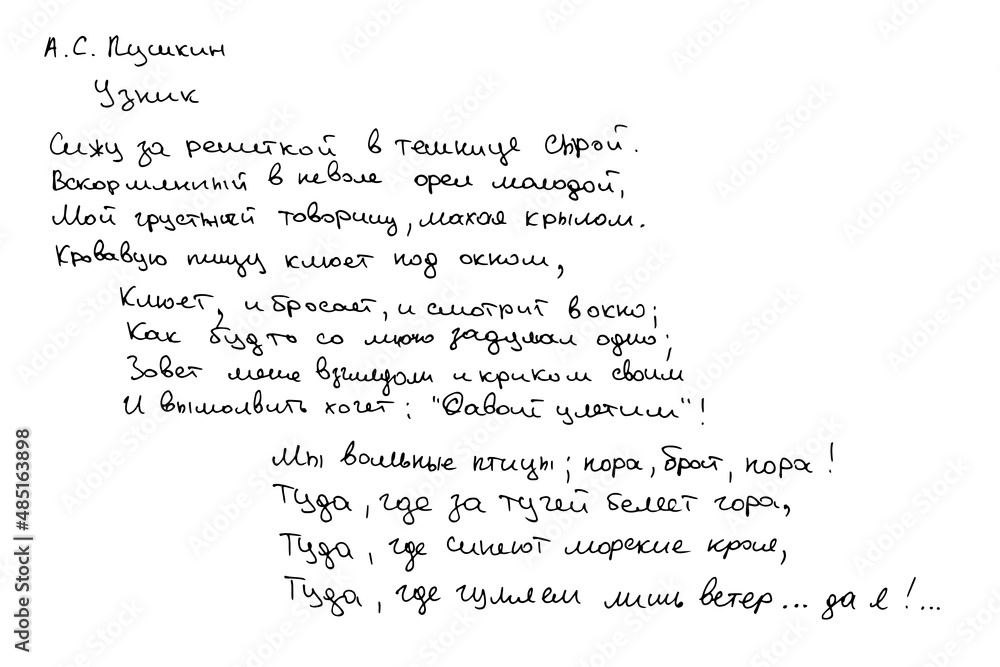 А.С. Пушкин
Узник
Сижу за решеткой в темнице сырой.
Вскормленный в неволе орел молодой,
Мой грустный товарищ, махая крылом.
Кровавую пищу клюет под окном,
Клюет, и бросает, и смотрит в окно;
Как будто со мною задумал одно;
Зовет меня взглядом и криком своим
И вымолвить хочет: "Давай улетим"!
Мы вольные птицы; пора, брат, пора!
Туда, где за тучей белеет гора,
Туда, где синеют морские края,
Туда, где гуляем лишь ветер... да я!...
Adobe Stock | #485163898